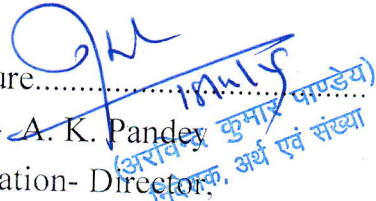 ure..........................................
A. K. Pandey
ation- Director,
(अरविन्द कुमार पाण्डेय)
निदेशक, अर्थ एवं संख्या